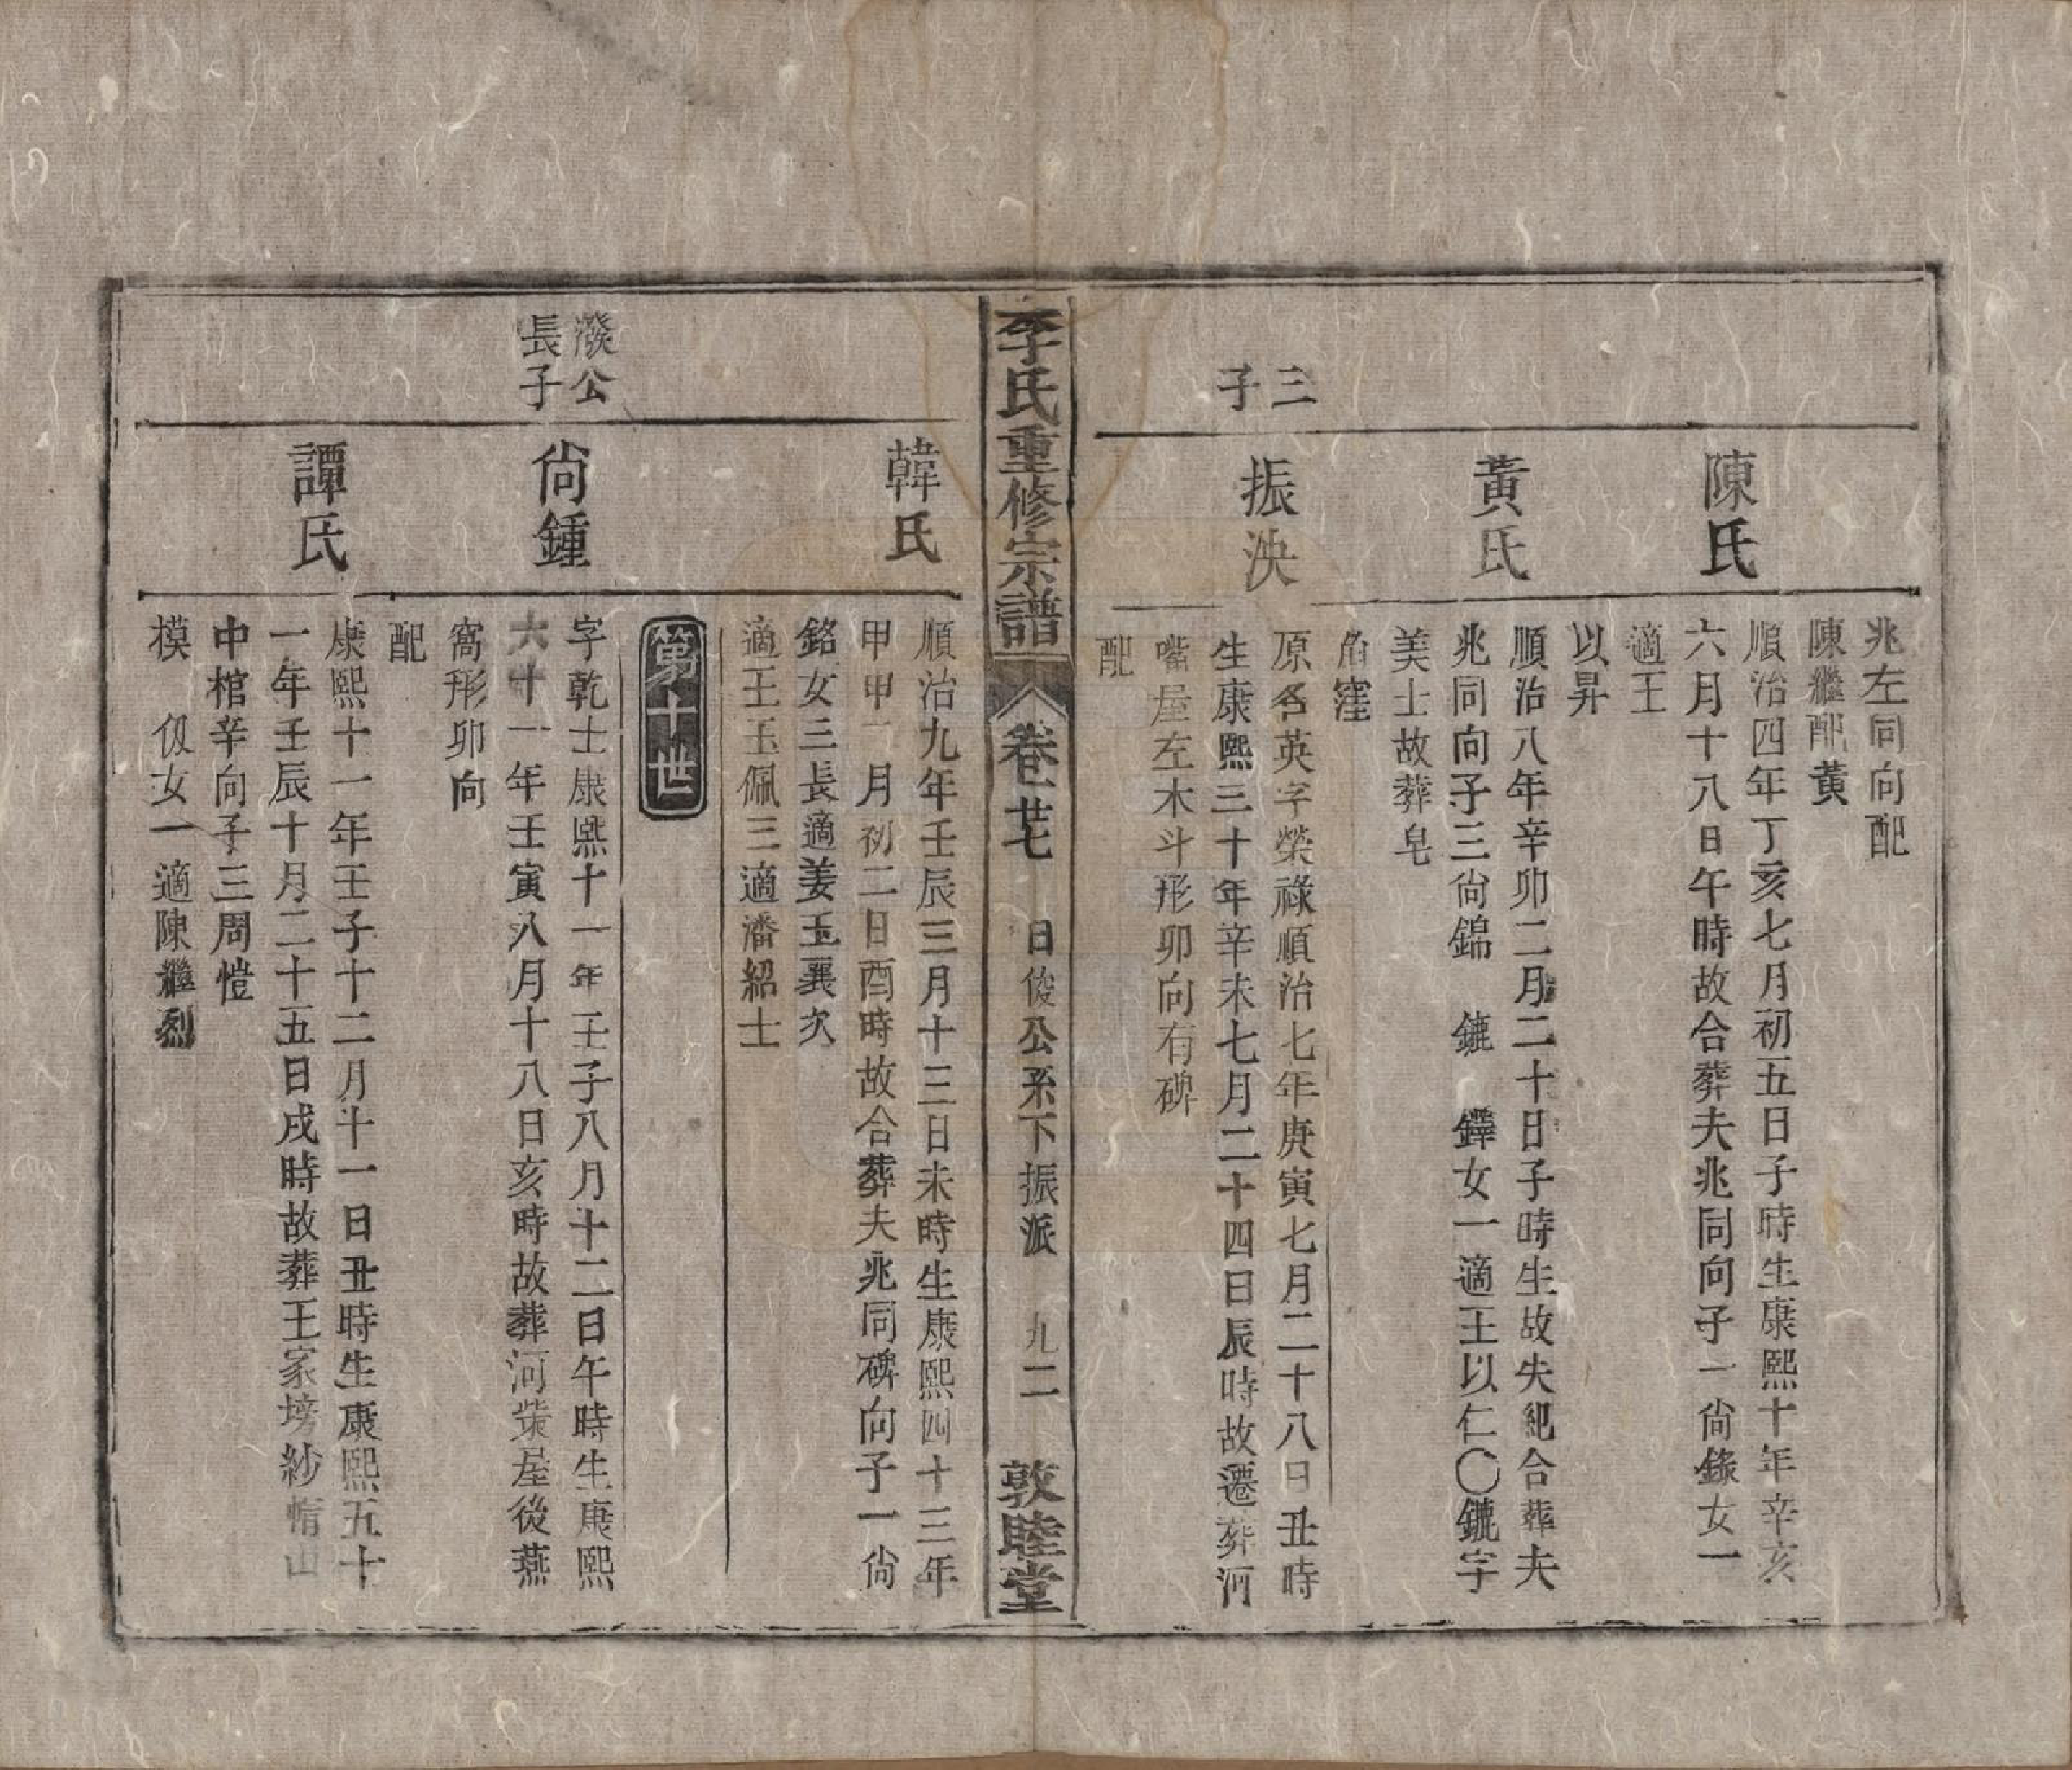 兆左同向配
陳繼配黃
陳氏
順治四年丁亥七月初五日子時生康熙十年辛亥
六月十八日午時故合葬夫兆同向子一尙錄女一
適王
以昇
黃氏
順治八年辛卯二月二十日子時生故失紀合葬夫
兆同向子三尙錦 鑣 鐸女一適王以仁〇鑣字
美士故葬皂
角窪
三
子
振泱
原名英字榮祿順治七年庚寅七月二十八日丑時
生康熙三十年辛未七月二十四日辰時故遷葬河
嘴屋左木斗形卯向有碑
配
李氏重修宗譜
卷廿七 日俊公系下振派 九二
敦睦堂
韓氏
順治九年壬辰三月十三日未時生康熙四十三年
甲申一月初二日酉時故合葬夫兆同碑向子一尙
銘女三長適姜玉襄次
適王玉佩三適潘紹士
第十世
潑公
長子
尙鍾
字乾士康熙十一年壬子八月十二日午時生康熙
六十一年壬寅八月十八日亥時故葬河柴屋後燕
窩形卯向
配
譚氏
康熙十一年壬子十二月十一日丑時生康熙五十
一年壬辰十月二十五日戌時故葬王家塝紗帽山
中棺辛向子三周愷
模 伋女一適陳繼烈